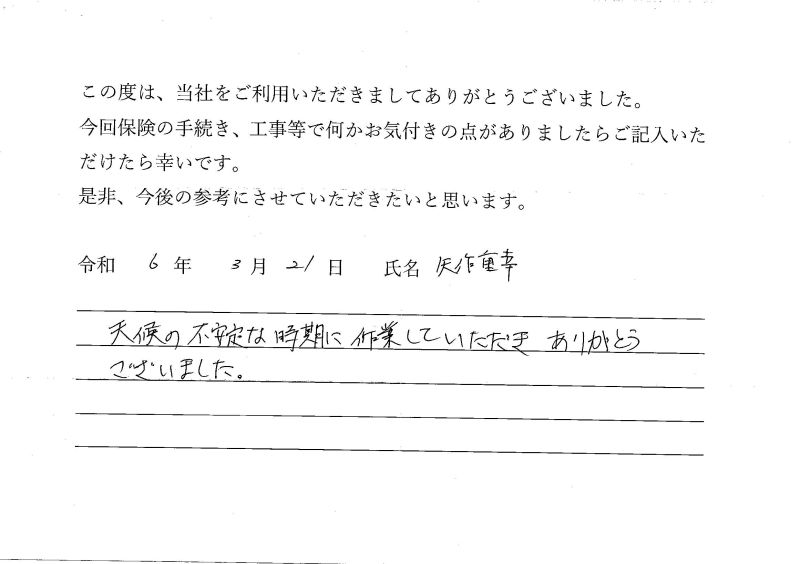 この度は、当社をご利用いただきましてありがとうございました。
今回保険の手続き、工事等で何かお気付きの点がありましたらご記入いた
だけたら幸いです。
是非、今後の参考にさせていただきたいと思います。
令和 6 年 3 月 21 日 氏名 矢作重幸
天候の不安定な時期に作業していただきありがとう
ございました。